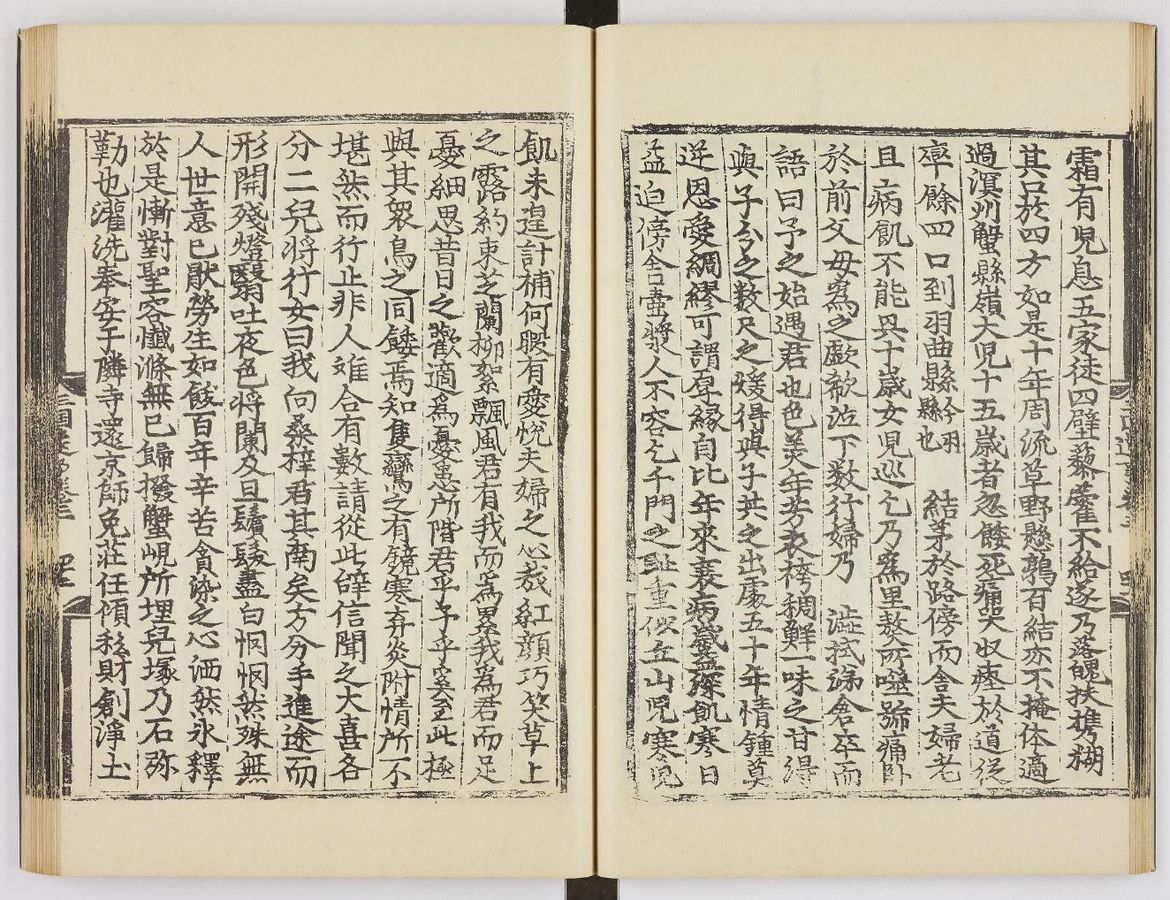 霜有児息五家徒四壁藜藿不給遂乃落魄扶携糊
其口於四方如是十年周流草野懸鶉百結亦不掩体適
過溟州蟹縣嶺大児十五歳者忽餧死痛哭収瘞於道従
率餘四口到羽曲縣今羽縣也 結茅於路傍而舍夫婦老
且病飢不能興十歳女児巡乞乃為里獒所噬號痛臥
於前父母為之歔欷泣下数行婦乃 澁拭涕倉卒而
語曰予之始遇君也色美年芳衣袴稠鮮一味之甘得
與子分之数尺之煖得與子共之出處五十年情鍾莫
逆恩愛綢繆可謂厚縁自比年来衰病歳益深飢寒日
益迫傍舍壺漿人不容乞千門之耻重似丘山児寒児
飢未遑計補何暇有愛悅夫婦之心哉紅顔巧笑草上
之露約束芝蘭柳絮飄風君有我而為累我為君而足
憂細思昔日之歡適為憂患所階君乎予乎奚至此極
與其衆鳥之同餧焉知隻鸞之有鏡寒弃炎附情所不
堪然而行止非人雖合有數請從此辞信聞之大喜各
分二児将行女曰我向桑梓君其南矣方分手進途而
形開殘燈翳吐夜色将闌及旦鬢髮盡白惘惘然殊無
人世意已厭勞生如飫百年辛苦貪染之心洒然氷釋
於是慚對聖容懺滌無已歸撥蟹峴所埋児塚乃石弥
勒也灌洗奉安于隣寺還京師免莊任傾私財創淨土